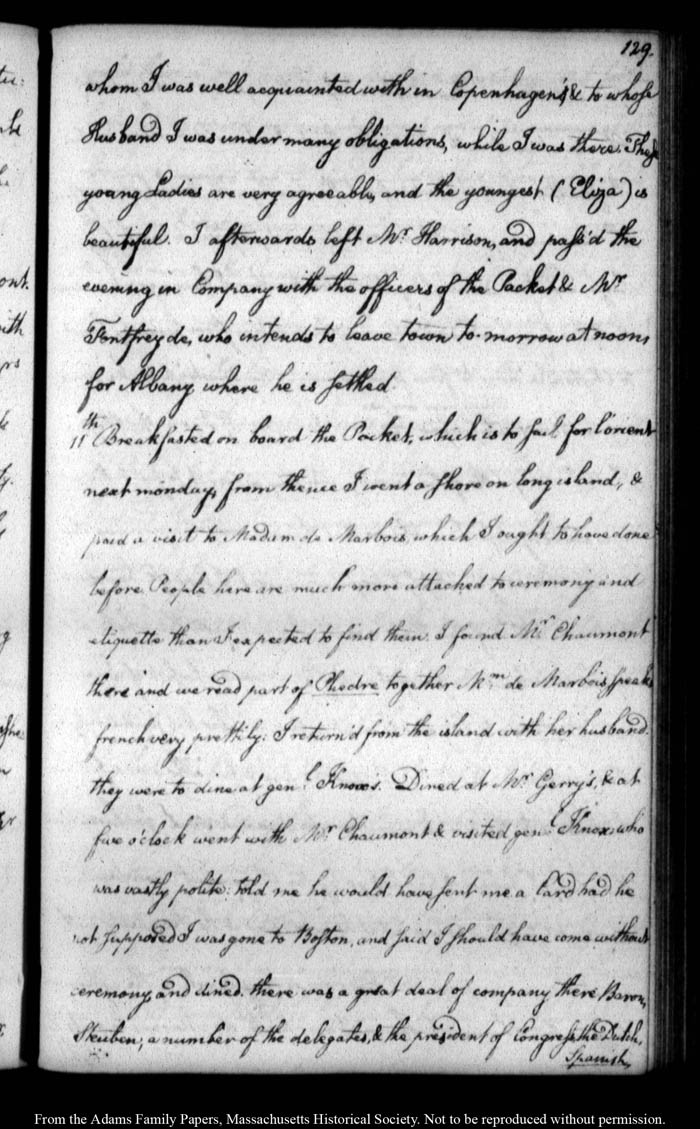 129.
whom I was well acquainted with in Copenhagen, & to whose
Husband I was under many obligations, while I was there. These
young Ladies are very agreeable, and the youngest (Eliza) is
beautiful. I afterwards left Mr. Harrison, and pass'd the
evening in Company with the officers of the Packet & Mr.
Fontfreyde, who intends to leave town to-morrow at noon,
for Albany where he is settled.
11th Breakfasted on board the Packet, which is to sail for l'orient
next monday, from thence I went a shore on long island, &
paid a visit to Madam de Marbois, which I ought to have done
before People here are much more attached to ceremony and
etiquette than I expected to find them. I found Mr. Chaumont
there and we read part of Phedre together Mme. de Marbois, speaks
french very prettily: I return'd from the island with her husband.
they were to dine at genl. Knox's. Dined at Mr. Gerry's, & at
five o'clock went with Mr. Chaumont & visited genl. Knox, who
was vastly polite: told me he would have sent me a Card had he
not supposed I was gone to Boston, and said I should have come without
ceremony, and dined. there was a great deal of company there Baron,
Steuben, a number of the delegates, & the president of Congress, the Dutch,
Spanish,
From the Adams Family Papers, Massachusetts Historical Society. Not to be reproduced without permission.